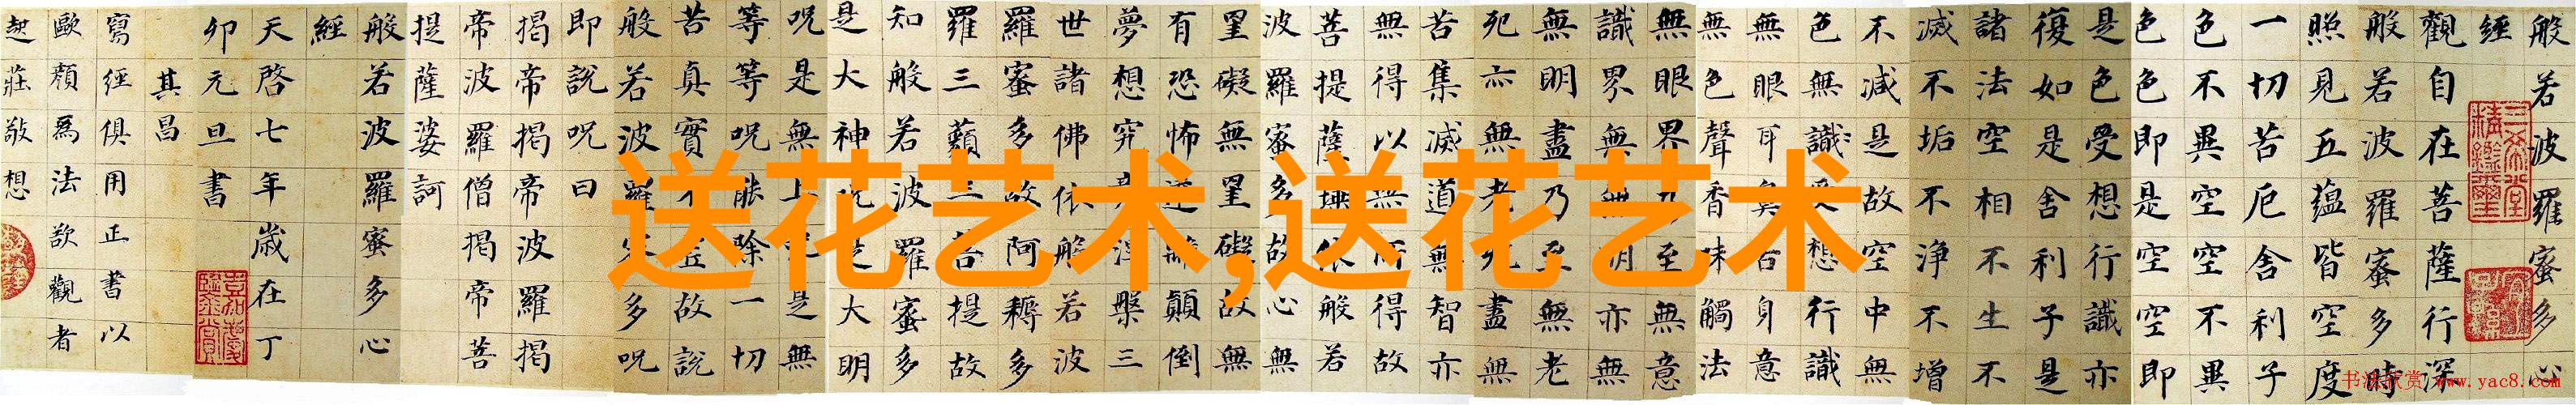 般若波羅蜜多心
經
觀自在菩薩行深
般若波羅蜜多時
照見五蘊皆空度
一切苦厄舍利子
色不異空空不異
色色即是空空即
是色受想行識亦
復如是舍利子是
諸法空相不生不
滅不垢不淨不增
不減是故空中無
色無識受想行識
無眼耳鼻舌身意
無色聲香味觸法
無眼界乃至無意
識界無無明亦無
無明盡乃至無老
死亦無老死盡無
苦集滅道無智亦
無得以無所得故
菩提薩埵依般若
波羅蜜多故心無
罣礙無罣礙故無
有恐怖遠離顛倒
夢想究竟涅槃三
世諸佛依般若波
羅蜜多故阿耨多
羅三藐三菩提故
知般若波羅蜜多
是大神呪是大明
呪是無上呪是無
等等呪能除一切
苦真實不虛故說
般若波羅蜜多呪
即說呪曰
揭帝揭帝波羅揭
帝波羅僧揭帝菩
提薩婆訶
般若波羅蜜多心
經
天啓七年歲在丁
卯元旦書
其昌
寫經俱用正書以
歐顏爲法欲觀者
起莊敬想
送花艺术,送花艺术
书法欣赏 www.yac8.com